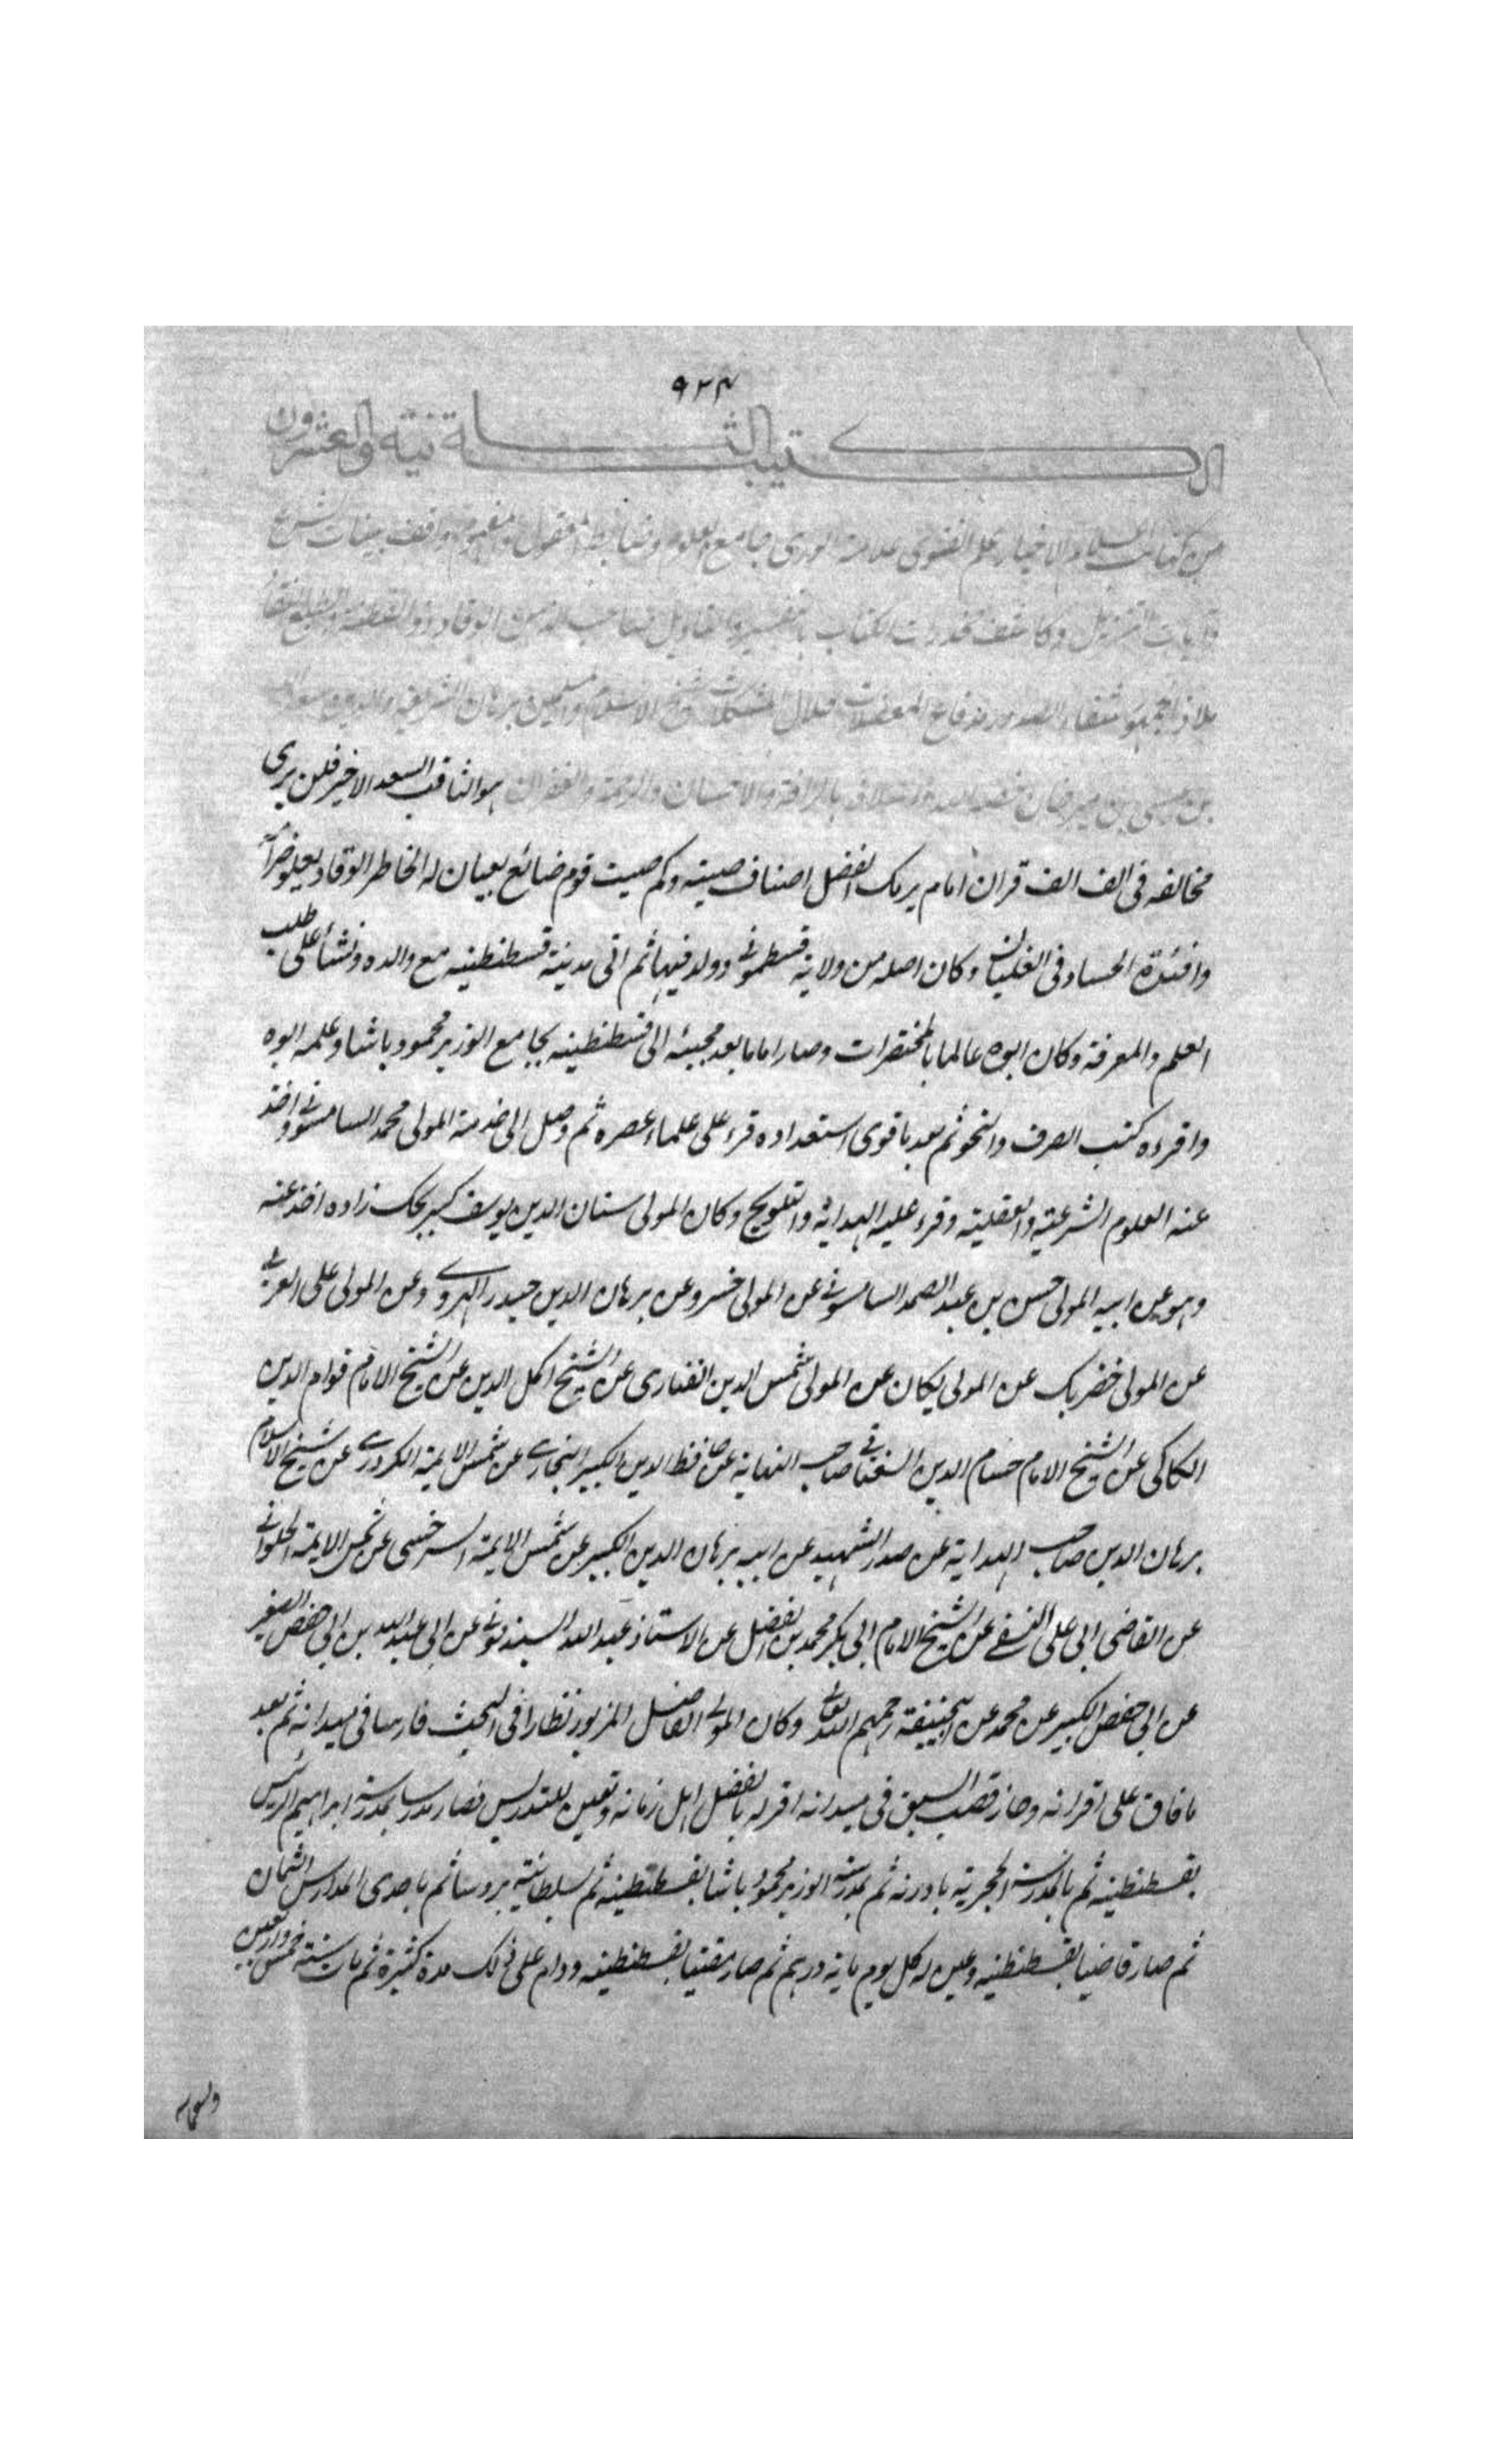 ٩٢٣
الكتيبة الثانية والعشرون
من كتائب اعلام الاخيار علم الفتوى علامة الورى جامع العلوم وضابط المعقول والمفهوم واقف بينات الشرع
وآيات التنزيل وكاشف مخدرات الكتاب بالتفسير والتاويل صاحب الذهن الوقاد ذو الفطنة والطبع
ملاذ الجمهور شفاء الصدور دفاع المعضلات حلال المشكلات شيخ الاسلام والمسلمين برهان الشريعة والدين سعد الله
بن عيسى بن امير خان والرحمة والغفران هو الثاقب السعد الاخير فلن يرى
مخالفه فى الف الف قران امام يريك الفضل اصناف صيته وكم صيت قوم ضائع بعيان له الخاطر الوقاد يعلو
وافئدة الحساد فى الغليان وكان اصله من ولاية قسطمونى وولد فيها ثم اتى مدينة قسطنطينيه مع والده ونشأ على طلب
العلم والمعرفة وكان ابوه عالما بالمختصرات وصار اماما بعد مجيئه الى قسطنطينيه بجامع الوزير محمود باشا وعلمه ابوه
واقرءه كتب الصرف والنحو ثم بعد ما قوى استعداده قرء على علماء عصره ثم وصل الى خدمة المولى محمد السامسونى واخذ
عنه العلوم الشرعية والعقلية وقرء عليه الهداية والتلويح وكان المولى سنان الدين يوسف كبيربيك زاده اخذ عنه
وهو عن ابيه المولى حسن بن عبد الصمد السامسونى عن المولى خسرو عن برهان الدين حيدر الهروى وعن المولى على العربى
عن المولى خضر بك عن المولى يكان عن المولى شمس الدين الفنارى عن الشيخ اكمل الدين عن الشيخ الامام قوام الدين
الكاكى عن الشيخ الامام حسام الدين السغناقى صاحب النهاية عن حافظ الدين الكبير البخارى عن شمس الايمة الكردرى عن شيخ الاسلام
برهان الدين صاحب الهداية عن صدر الشهيد عن ابيه برهان الدين الكبير عن شمس الايمة السرخسى عن شمس الايمة الحلوانى
عن القاضى ابى على النسفى عن الشيخ الامام ابى بكر محمد بن الفضل عن الاستاذ عبد الله السبذمونى عن ابى عبد الله بن ابى حفص الصغير
عن ابى حفص الكبير عن محمد عن ابيحنيفة رحمهم الله تعالى وكان المولى الفاضل المزبور نظارا فى البحث فارسا فى ميدانه ثم بعد
ما فاق على اقرانه وحاز قصب السبق فى ميدانه اقر له بالفضل اهل زمانه وتعين للتدريس فصار مدرسا بمدرسة ابراهيم الرئيس
بقسطنطينيه ثم بالمدرسة الحجرية بادرنه ثم بمدرسة الوزير محمود باشا بقسطنطينيه ثم بسلطانية بروسا ثم باحدى المدارس الثمان
ثم صار قاضيا بقسطنطينيه وعين له كل يوم ماية درهم ثم صار مفتيا بقسطنطينيه ودام على ذلك مدة كثيرة ثم مات سنة خمس واربعين
وتسعمايه